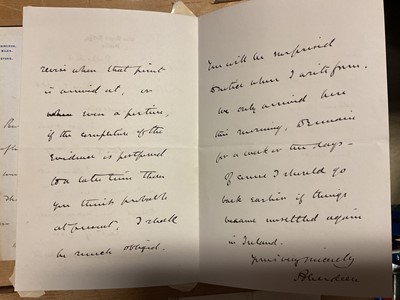 revise when that point
is arrived at, or
even a picture,
if the completion of the
Evidence is postponed
to a later time than
you think probable
at present, I shall
be much obliged.
You will be surprised
to see where I write from.
We only arrived here
this morning, to remain
for a week or ten days -
Of course I should go
back earlier if things
became unsettled again
in Ireland.
Yours very sincerely
Aberdeen